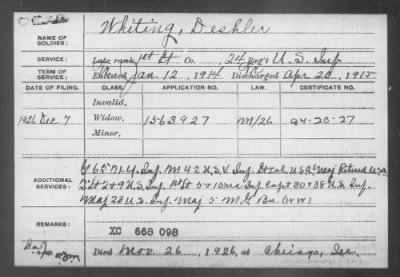 NAME OF SOLDIER: Whiting, Deshler
SERVICE: Late rank, 1st Lt Co. 24 Reg't U.S. Inf
TERM OF SERVICE: Enlisted Jan. 12, 1914 Discharged Apr 20, 1915
DATE OF FILING CLASS. APPLICATION NO. LAW. CERTIFICATE NO.
Invalid,
1926 Dec. 7 Widow, 1563927 M/26 94-20-27
Minor,
G 65 N.Y. Inf. M 42 U.S.V. Inf. Lt Col. U.S.A. Maj Retired U.S.A.
ADDITIONAL SERVICES: 2d Lt 2 & 9 U.S. Inf. 1st Lt 5 & 15 Inf Capt 30 & 38 U.S. Inf.
Maj 23 U.S. Inf. Maj 5 M G Bn. (WW)
REMARKS: XC 668 098
Died Nov. 26, 1926, at Chicago, Ill.